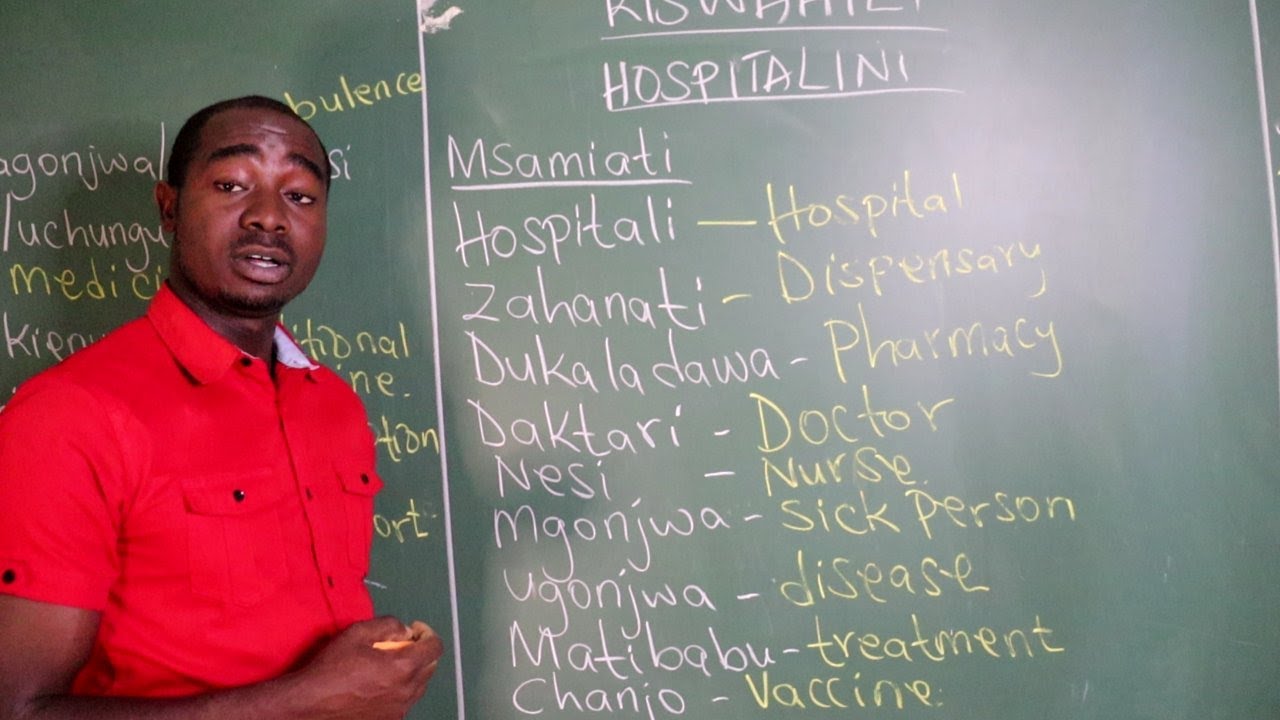 bulence
agonjwa/ si
/uchungu
medici
kienu itional
ine.
tion
ort
KISWAHILI
HOSPITALINI
Msamiati
Hospitali – Hospital
Zahanati – Dispensary
Duka la dawa – Pharmacy
Daktari – Doctor
Nesi – Nurse
Mgonjwa – Sick Person
Ugonjwa – disease
Matibabu – treatment
Chanjo – Vaccine